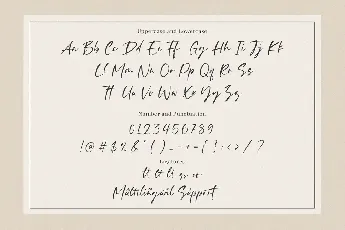 Uppercase and Lowercase
Aa Bb Cc Dd Ee Ff Gg Hh Ii Jj Kk
Ll Mm Nn Oo Pp Qq Rr Ss
Tt Uu Vv Ww Xx Yy Zz
Number and Punctuation
0123456789
Ligatures
Multilingual Support